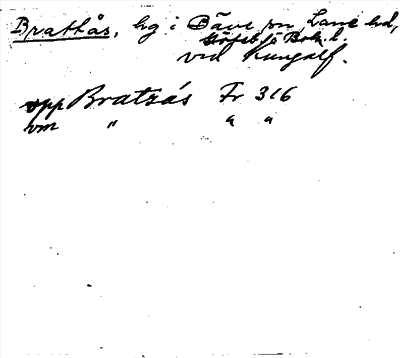 Bratkås, hg i Bäve sn, Lane hd,
Göteb o Boh. l.
vid Kungälf.
opp Bratsås Fr 316
vm " " "